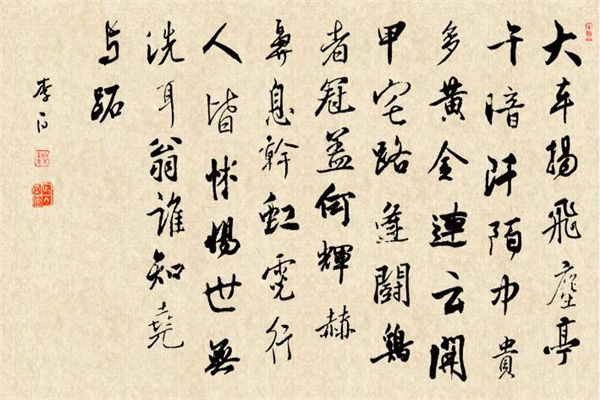 大车揚飛塵亭
午暗阡陌中貴
多黄金連云開
甲宅路逢闘鷄
者冠盖何輝赫
鼻息幹虹霓行
人皆怵惕世無
洗耳翁誰知堯
与跖
李白